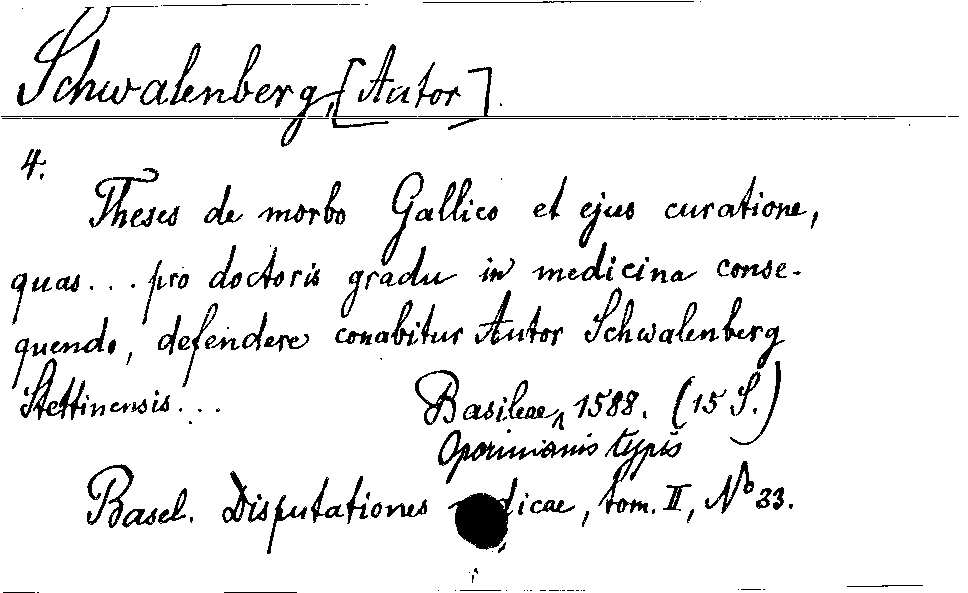 Schwalenberg, [Autor].
4.
Theses de morbo Gallico et ejus curatione,
quas... pro doctoris gradu in medicina conse-
quendo, defendere conabitur Autor Schwalenberg
Stettinensis... Basileae, 1588. (15 S.)
Oporinianis typis
Basel. Disputationes dicae, tom. II, No 33.